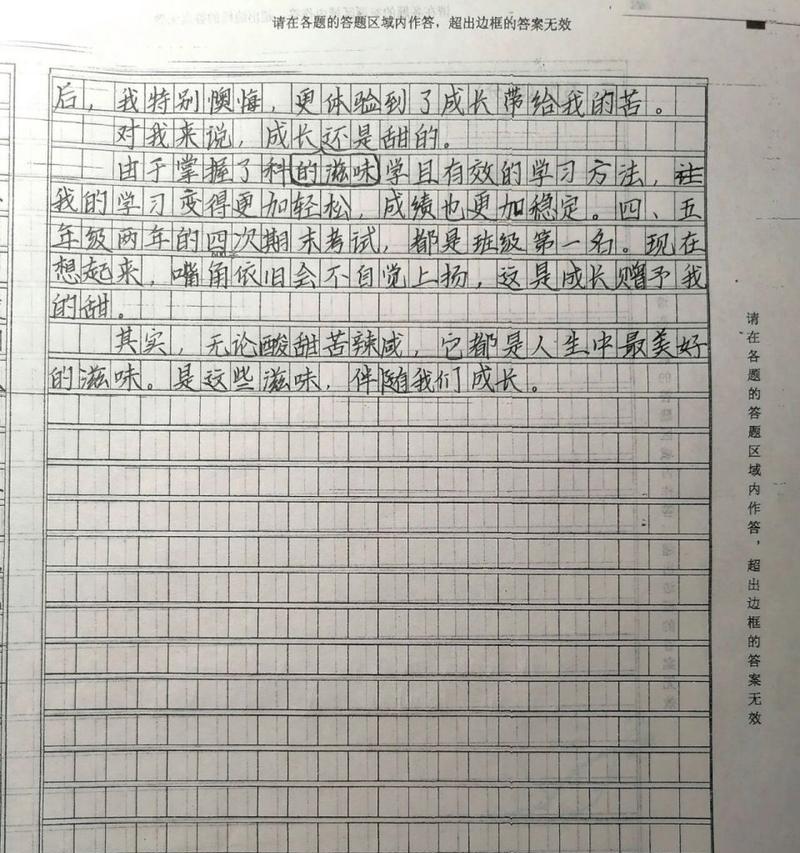 请在各题的答题区域内作答，超出边框的答案无效
后，我特别懊悔，更体验到了成长带给我的苦。
对我来说，成长还是甜的。
由于掌握了科的滋味学且有效的学习方法，让
我的学习变得更加轻松，成绩也更加稳定。四、五
年级两年的四次期末考试，都是班级第一名。现在
想起来，嘴角依旧会不自觉上扬，这是成长赠予我
的甜。
其实，无论酸甜苦辣咸，它都是人生中最美好
的滋味。是这些滋味，伴随我们成长。
请在各题的答题区域内作答，超出边框的答案无效